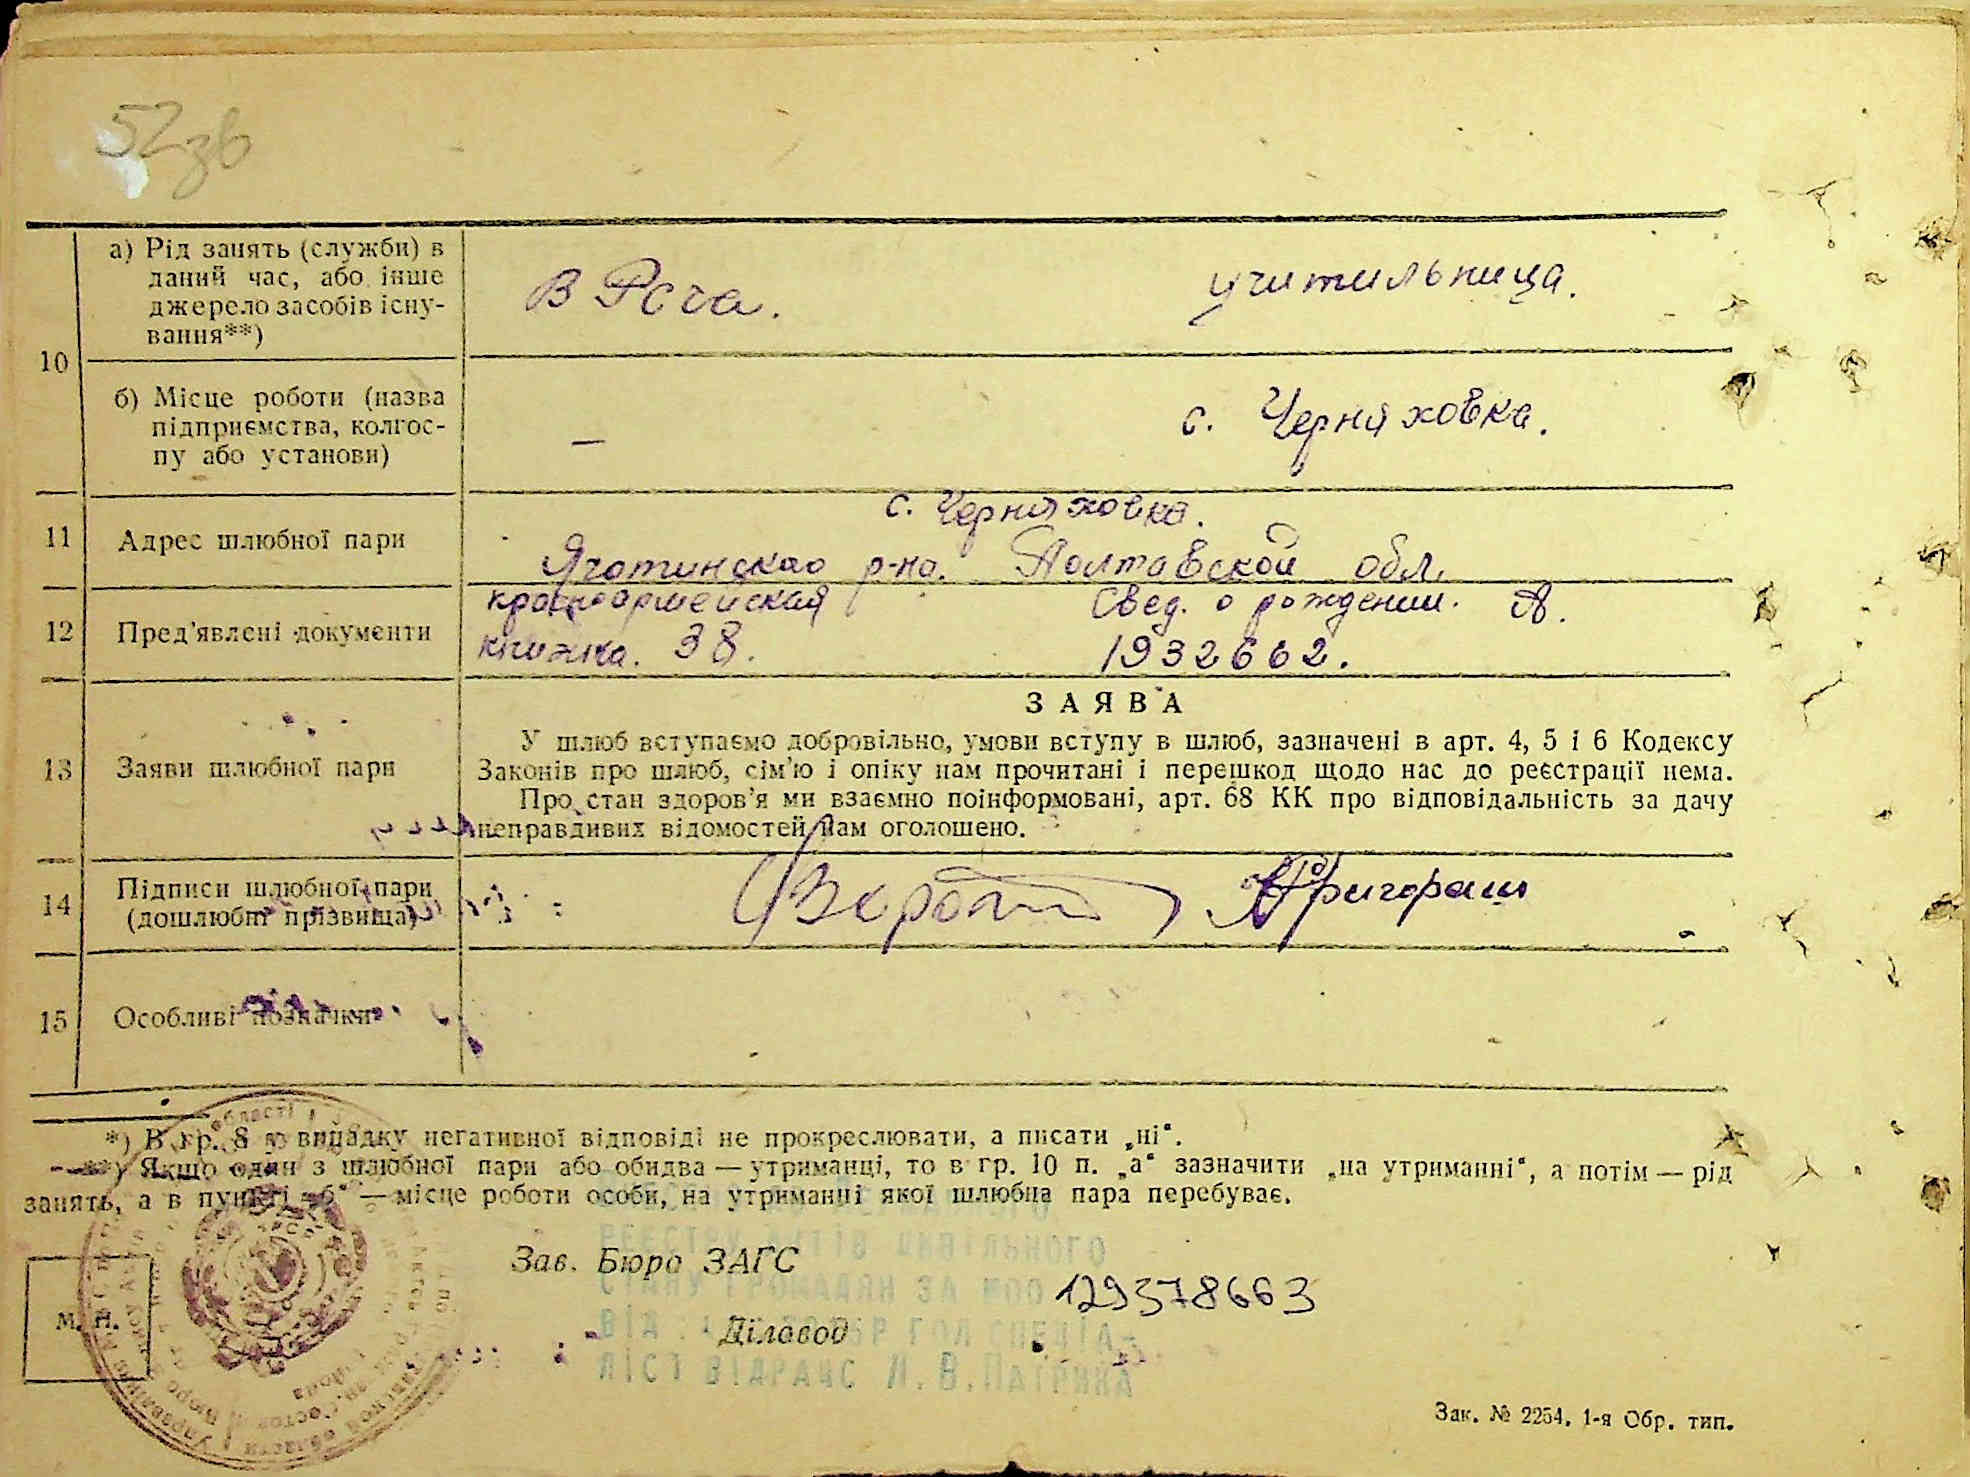 52зв
а) Рід занять (служби) в
даний час, або інше
джерело засобів існу-
вання**)
В Рсча.
учитильница.
10
б) Місце роботи (назва
підприємства, колгос-
пу або установи)
—
с. Черняховка.
11
Адрес шлюбної пари
с. Черняховка.
Яготинскао р-на. Полтавской обл.
12
Пред'явлені документи
красноармейская
книжка. 38.
Свед. о рождении. А.
1932662.
13
Заяви шлюбної пари
ЗАЯВА
У шлюб вступаємо добровільно, умови вступу в шлюб, зазначені в арт. 4, 5 і 6 Кодексу
Законів про шлюб, сім'ю і опіку нам прочитані і перешкод щодо нас до реєстрації нема.
Про стан здоров'я ми взаємно поінформовані, арт. 68 КК про відповідальність за дачу
неправдивих відомостей нам оголошено.
14
Підписи шлюбної пари
(дошлюбні прізвища)
Григораш
15
Особливі позначки
*) В гр. 8 у випадку негативної відповіді не прокреслювати, а писати „ні“.
**) Якщо один з шлюбної пари або обидва — утриманці, то в гр. 10 п. „а“ зазначити „на утриманні“, а потім — рід
занять, а в пункті „б“ — місце роботи особи, на утриманні якої шлюбна пара перебуває.
РЕЄСТРУ АКТІВ ЦИВІЛЬНОГО
Зав. Бюро ЗАГС
СТАНУ ГРОМАДЯН ЗА №00
129378663
Діловод
ВІД ГОЛ СПЕЦІА-
ЛІСТ ВІДРАЦС Л.В.ПАТРИКА
М. П.
Зак. № 2254. 1-я Обр. тип.